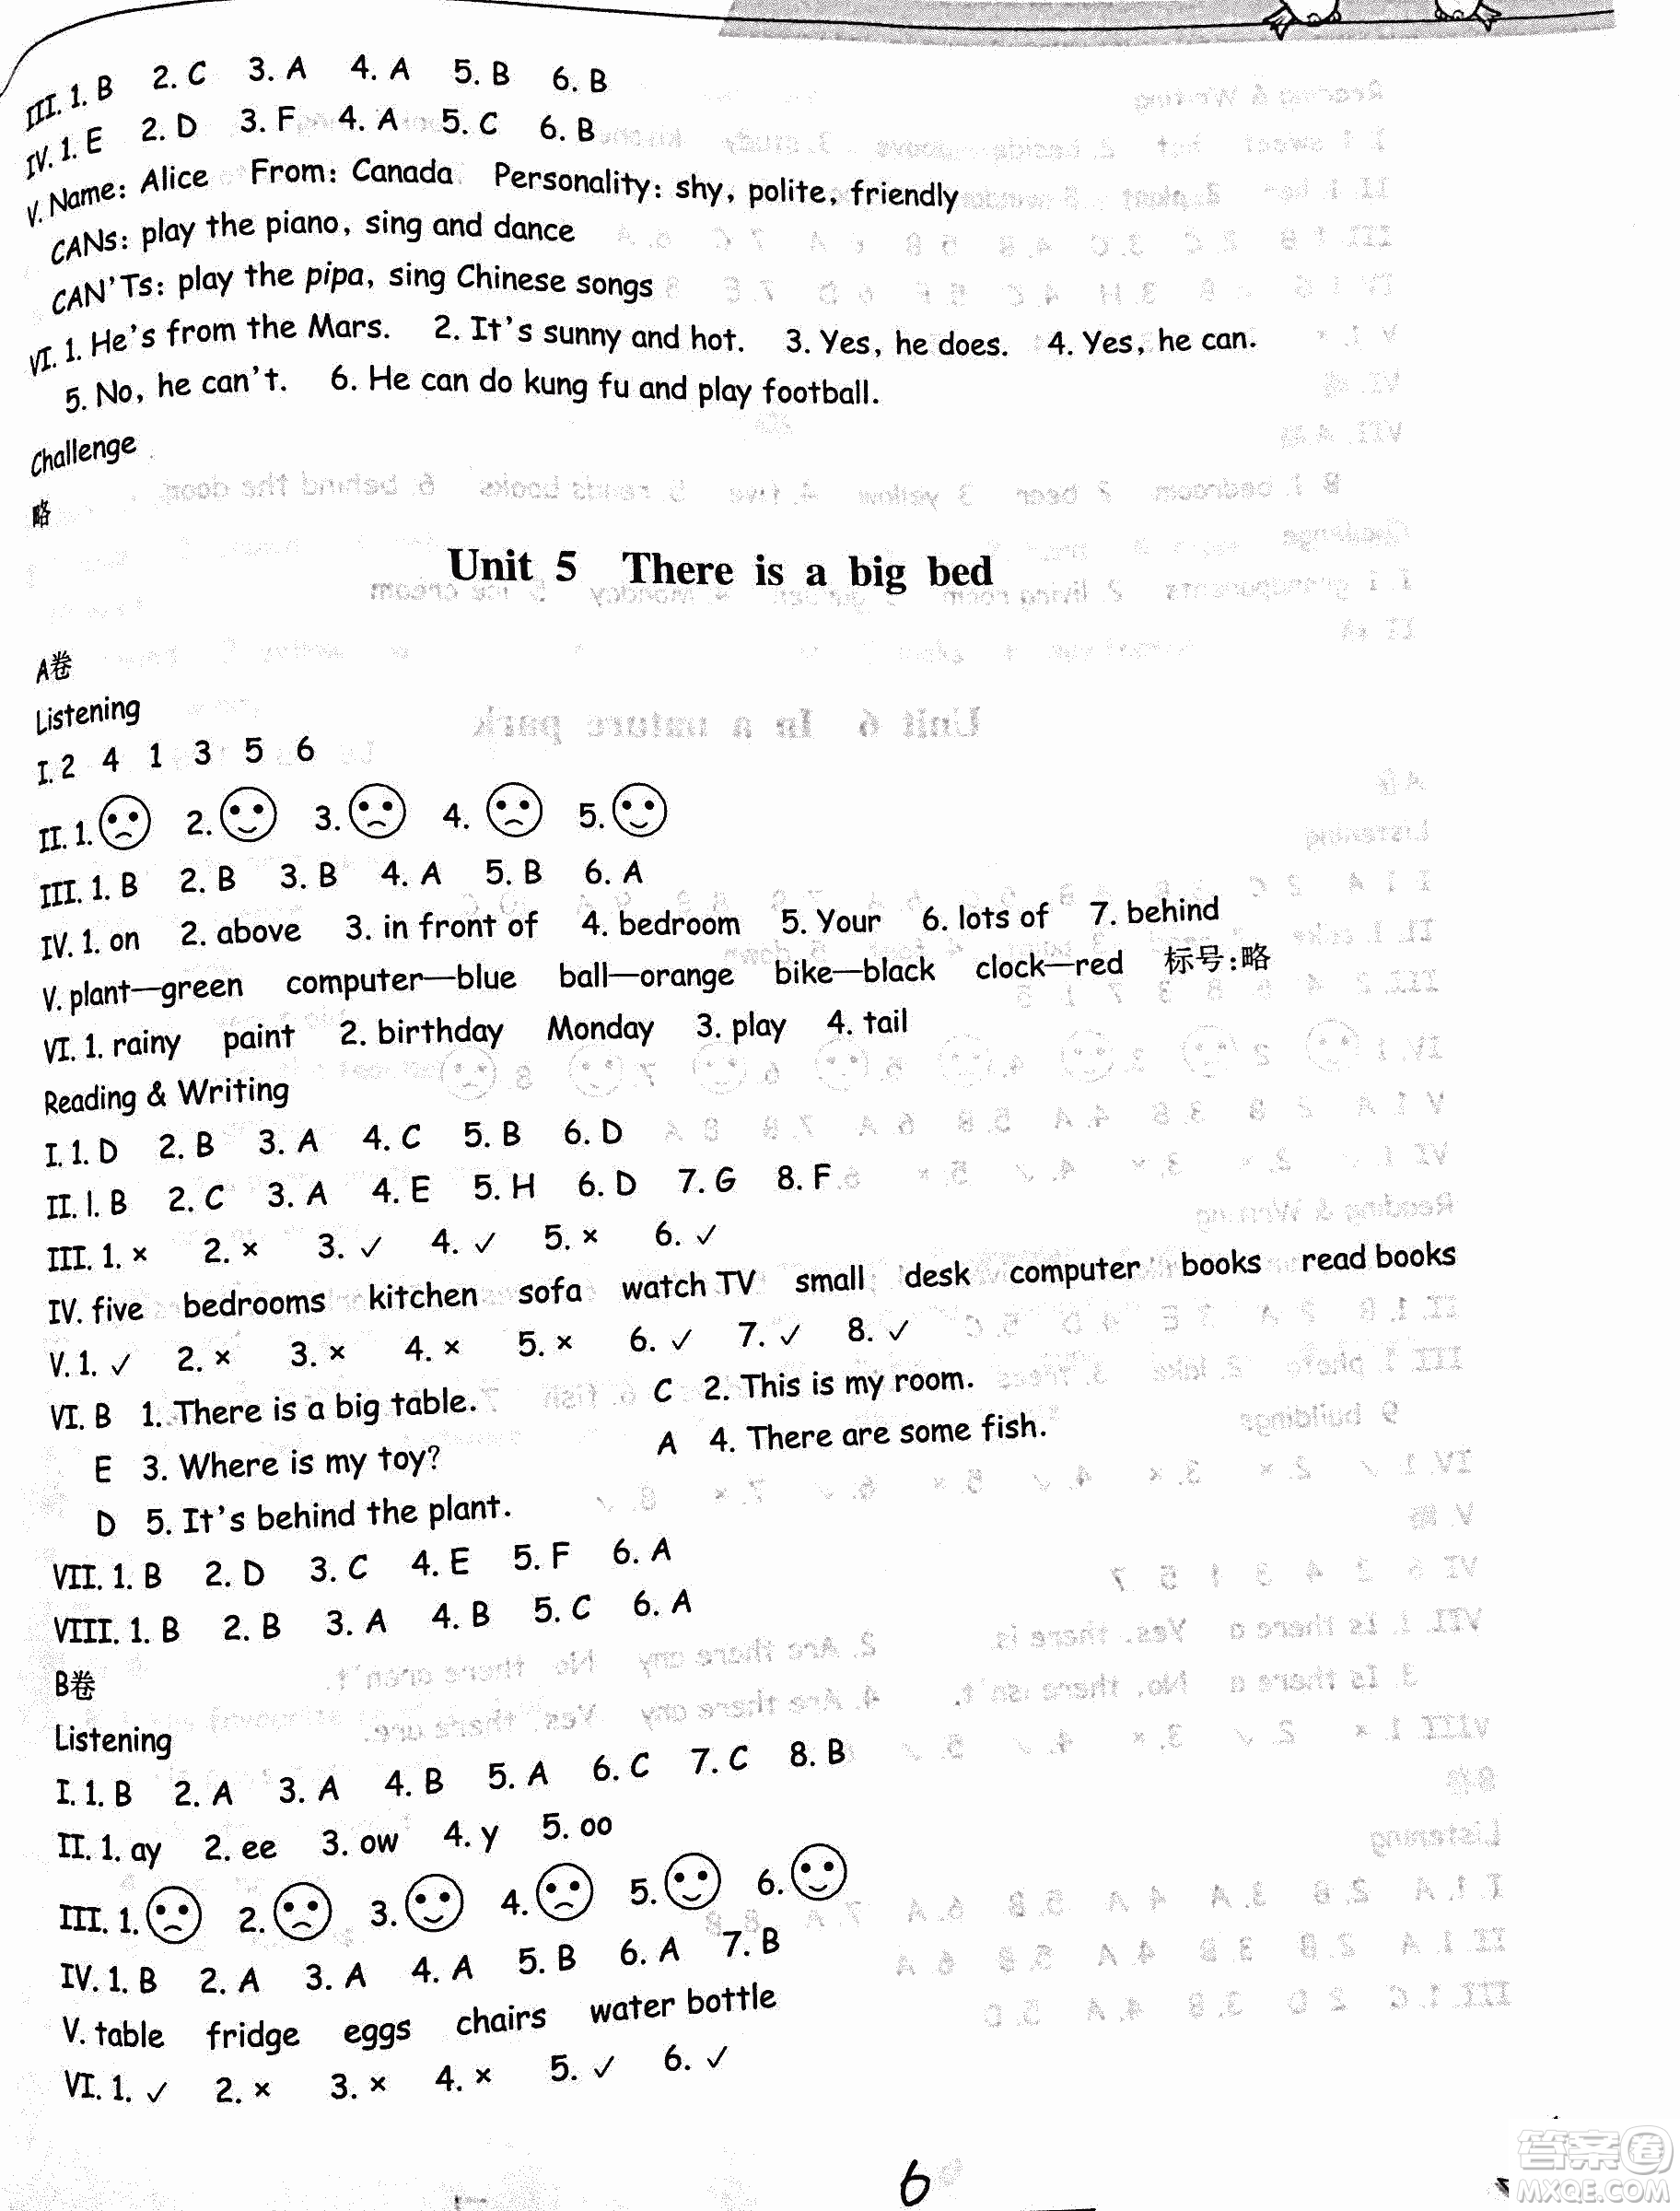 III. 1. B 2. C 3. A 4. A 5. B 6. B
IV. 1. E 2. D 3. F 4. A 5. C 6. B
V. Name: Alice From: Canada Personality: shy, polite, friendly
CANs: play the piano, sing and dance
CAN'Ts: play the pipa, sing Chinese songs
VI. 1. He's from the Mars. 2. It's sunny and hot. 3. Yes, he does. 4. Yes, he can.
5. No, he can't. 6. He can do kung fu and play football.
Challenge
略
Unit 5 There is a big bed
A卷
Listening
I. 2 4 1 3 5 6
II. 1. 2. 3. 4. 5.
III. 1. B 2. B 3. B 4. A 5. B 6. A
IV. 1. on 2. above 3. in front of 4. bedroom 5. Your 6. lots of 7. behind
V. plant—green computer—blue ball—orange bike—black clock—red 标号:略
VI. 1. rainy paint 2. birthday Monday 3. play 4. tail
Reading & Writing
I. 1. D 2. B 3. A 4. C 5. B 6. D
II. 1. B 2. C 3. A 4. E 5. H 6. D 7. G 8. F
III. 1. × 2. × 3. ✓ 4. ✓ 5. × 6. ✓
IV. five bedrooms kitchen sofa watch TV small desk computer books read books
V. 1. ✓ 2. × 3. × 4. × 5. × 6. ✓ 7. ✓ 8. ✓
VI. B 1. There is a big table. C 2. This is my room.
E 3. Where is my toy? A 4. There are some fish.
D 5. It's behind the plant.
VII. 1. B 2. D 3. C 4. E 5. F 6. A
VIII. 1. B 2. B 3. A 4. B 5. C 6. A
B卷
Listening
I. 1. B 2. A 3. A 4. B 5. A 6. C 7. C 8. B
II. 1. ay 2. ee 3. ow 4. y 5. oo
III. 1. 2. 3. 4. 5. 6.
IV. 1. B 2. A 3. A 4. A 5. B 6. A 7. B
V. table fridge eggs chairs water bottle
VI. 1. ✓ 2. × 3. × 4. × 5. ✓ 6. ✓
6
答案卷
MXQE.COM